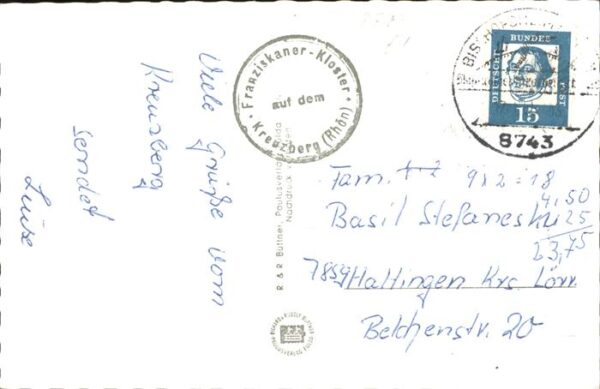 Viele Grüße vom
Kreuzberg
sendet
Luise
Franziskaner-Kloster
auf dem
Kreuzberg (Rhön)
R & R Büttner, Paulusverlag
Nachdruck
DEUTSCHE BUNDESPOST
15
8743
Fam.
9 x 2 = 18
4,50
Basil Stefaneski
25
23,75
7859 Haltingen Krs Lörr.
Belchenstr. 20